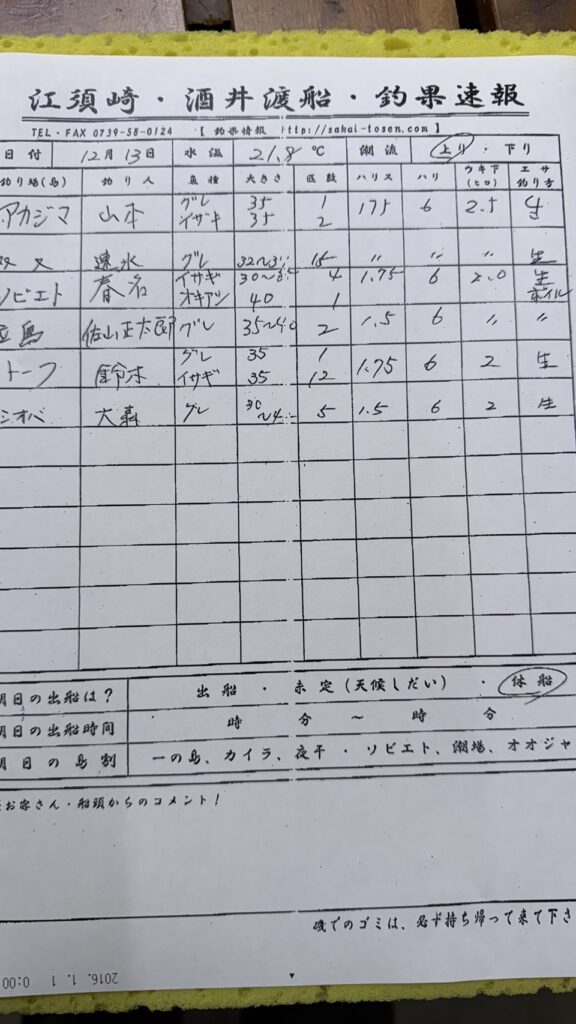 江須崎・酒井渡船・釣果速報
TEL・FAX 0739-58-0124 【 釣果情報 http://sakai-tosen.com 】
日付 12月13日 水温 21.8 ℃ 潮流 上り・下り
釣り場(島) 釣り人 魚種 大きさ 匹数 ハリス ハリ ウキ下(ヒロ) エサ釣り方
アカジマ 山本 グレ 35 1 175 6 2.5 生
イサギ 35 2
速水 グレ 32〜 15 〃 〃 〃 生
ソビエト 春名 イサギ 30〜35 4 1.75 6 2.0 生
オキアジ 40 1 ボイル
島 佐山正太郎 グレ 35〜40 2 1.5 6 〃 〃
トーフ 鈴木 グレ 35 1 1.75 6 2 生
イサギ 35 12
シオバ 大森 グレ 30〜4 5 1.5 6 2 生
明日の出船は? 出船・未定(天候しだい)・休船
明日の出船時間 時 分 〜 時 分
明日の島割 一の島、カイラ、夜平・ソビエト、潮場、オオジャ
お客さん・船頭からのコメント!
磯でのゴミは、必ず持ち帰って来て下さ
2016. 1. 1 0:00